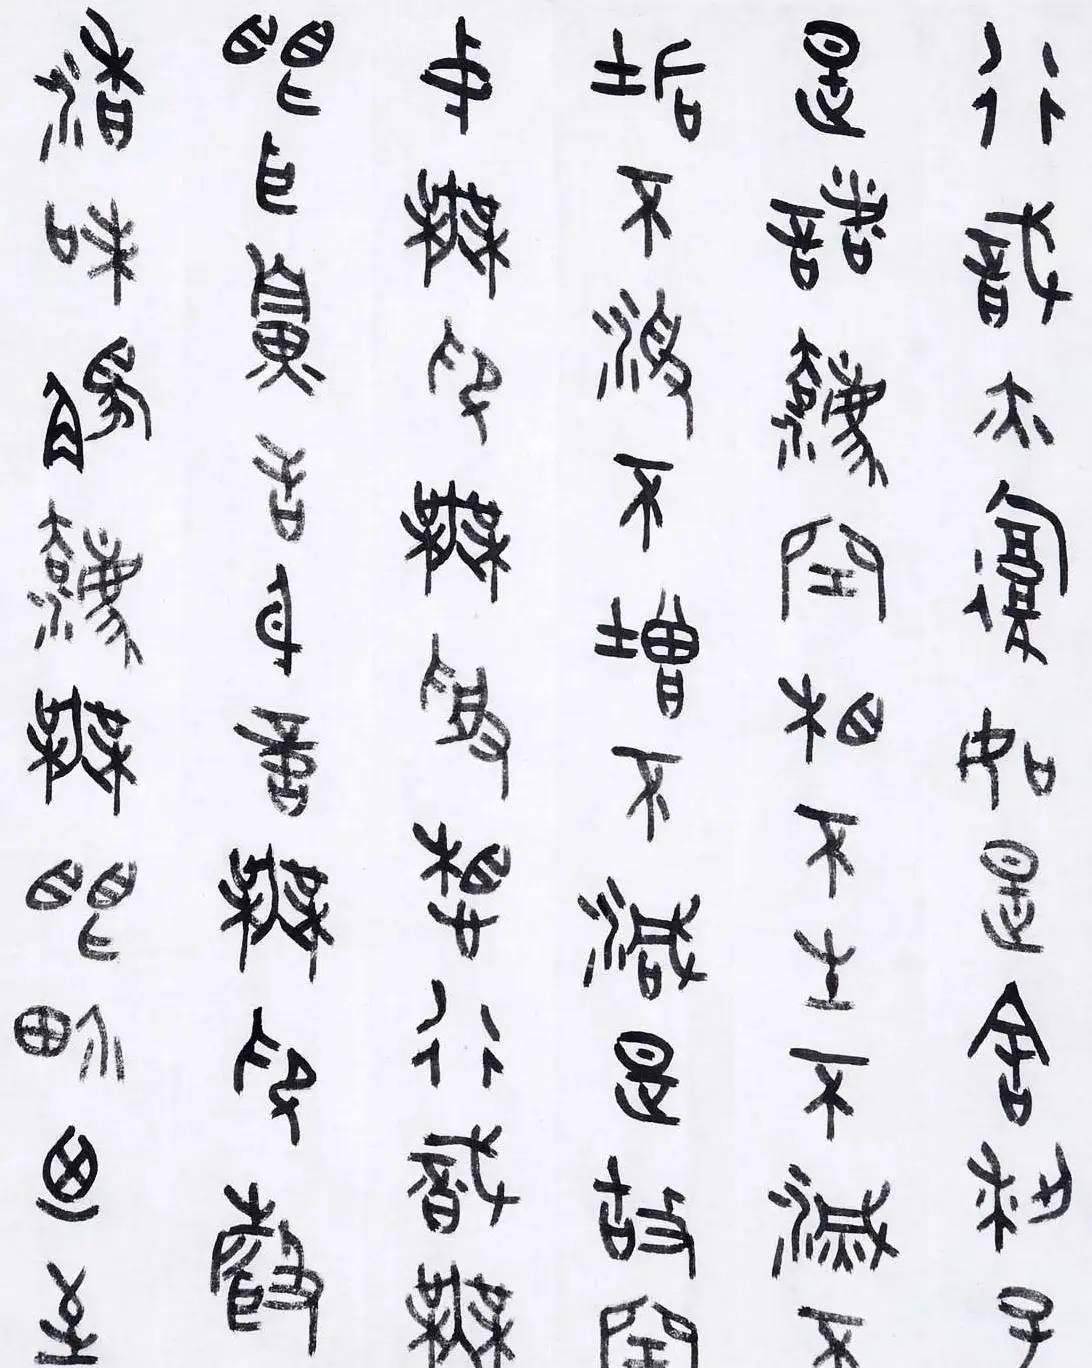 行識亦復如是舍利子
是諸法空相不生不滅不
垢不淨不增不減是故空
中無色無受想行識無
眼耳鼻舌身意無色聲
香味觸法無眼界乃至